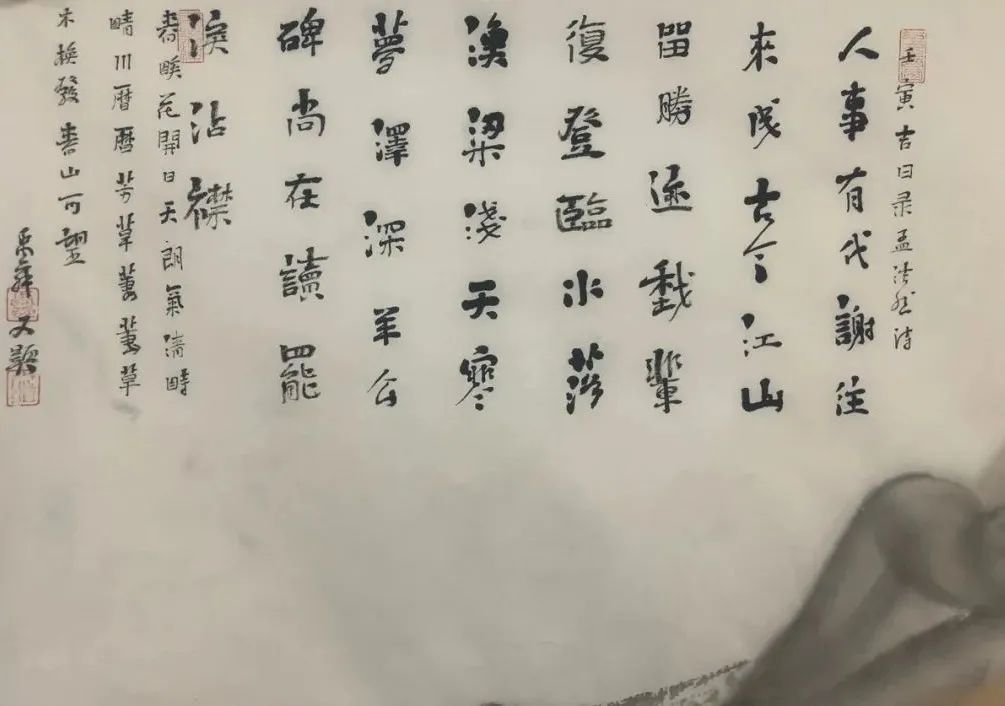 壬寅吉日录孟浩然诗
人事有代謝往
來成古今江山
留勝迹我輩
復登臨水落
漁梁淺天寒
夢澤深羊公
碑尚在讀罷
淚沾襟
春暖花開日天朗氣清時
晴川曆曆芳草萋萋草
木發春山可望
又題